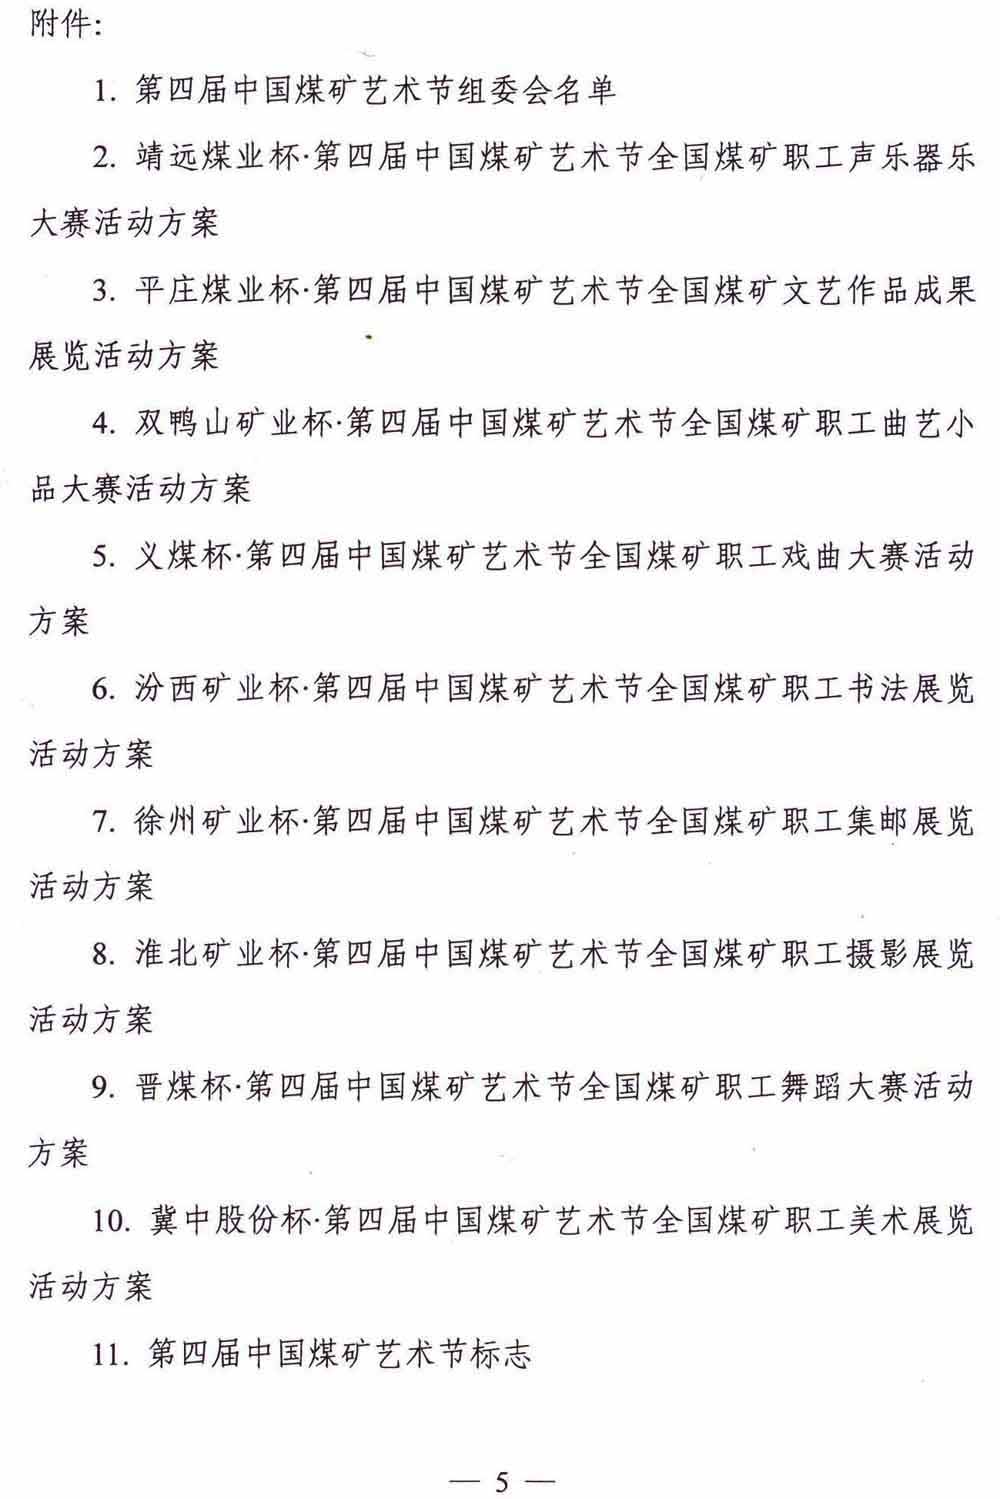 附件:
1. 第四届中国煤矿艺术节组委会名单
2. 靖远煤业杯·第四届中国煤矿艺术节全国煤矿职工声乐器乐
大赛活动方案
3. 平庄煤业杯·第四届中国煤矿艺术节全国煤矿文艺作品成果
展览活动方案
4. 双鸭山矿业杯·第四届中国煤矿艺术节全国煤矿职工曲艺小
品大赛活动方案
5. 义煤杯·第四届中国煤矿艺术节全国煤矿职工戏曲大赛活动
方案
6. 汾西矿业杯·第四届中国煤矿艺术节全国煤矿职工书法展览
活动方案
7. 徐州矿业杯·第四届中国煤矿艺术节全国煤矿职工集邮展览
活动方案
8. 淮北矿业杯·第四届中国煤矿艺术节全国煤矿职工摄影展览
活动方案
9. 晋煤杯·第四届中国煤矿艺术节全国煤矿职工舞蹈大赛活动
方案
10. 冀中股份杯·第四届中国煤矿艺术节全国煤矿职工美术展览
活动方案
11. 第四届中国煤矿艺术节标志
— 5 —